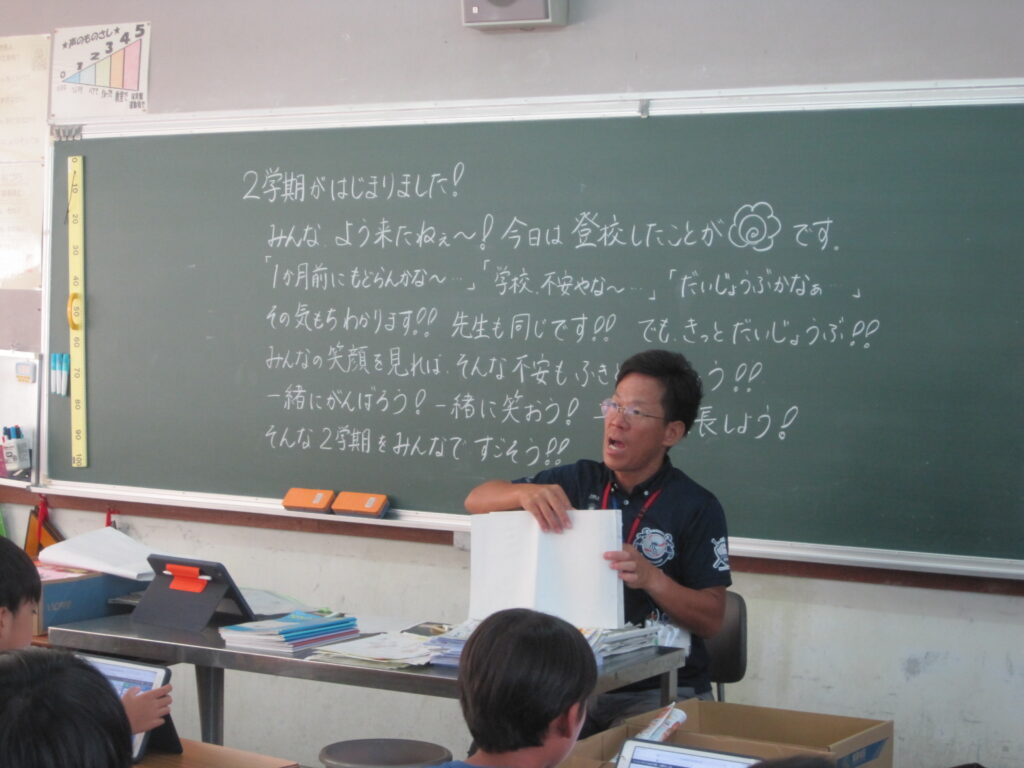 ★声のものさし★
0 1 2 3 4 5
0 10 20 30 40 50 60 70 80 90 100
2学期がはじまりました!
みんな、よう来たねぇ〜! 今日は登校したことが です。
「1か月前にもどらんかな〜…」「学校、不安やな〜…」「だいじょうぶかなぁ…」
その気もちわかります!! 先生も同じです!! でも、きっとだいじょうぶ!!
みんなの笑顔を見れば、そんな不安も、ふき う!!
一緒にがんばろう! 一緒に笑おう! 長しよう!
そんな2学期をみんなですごそう!!